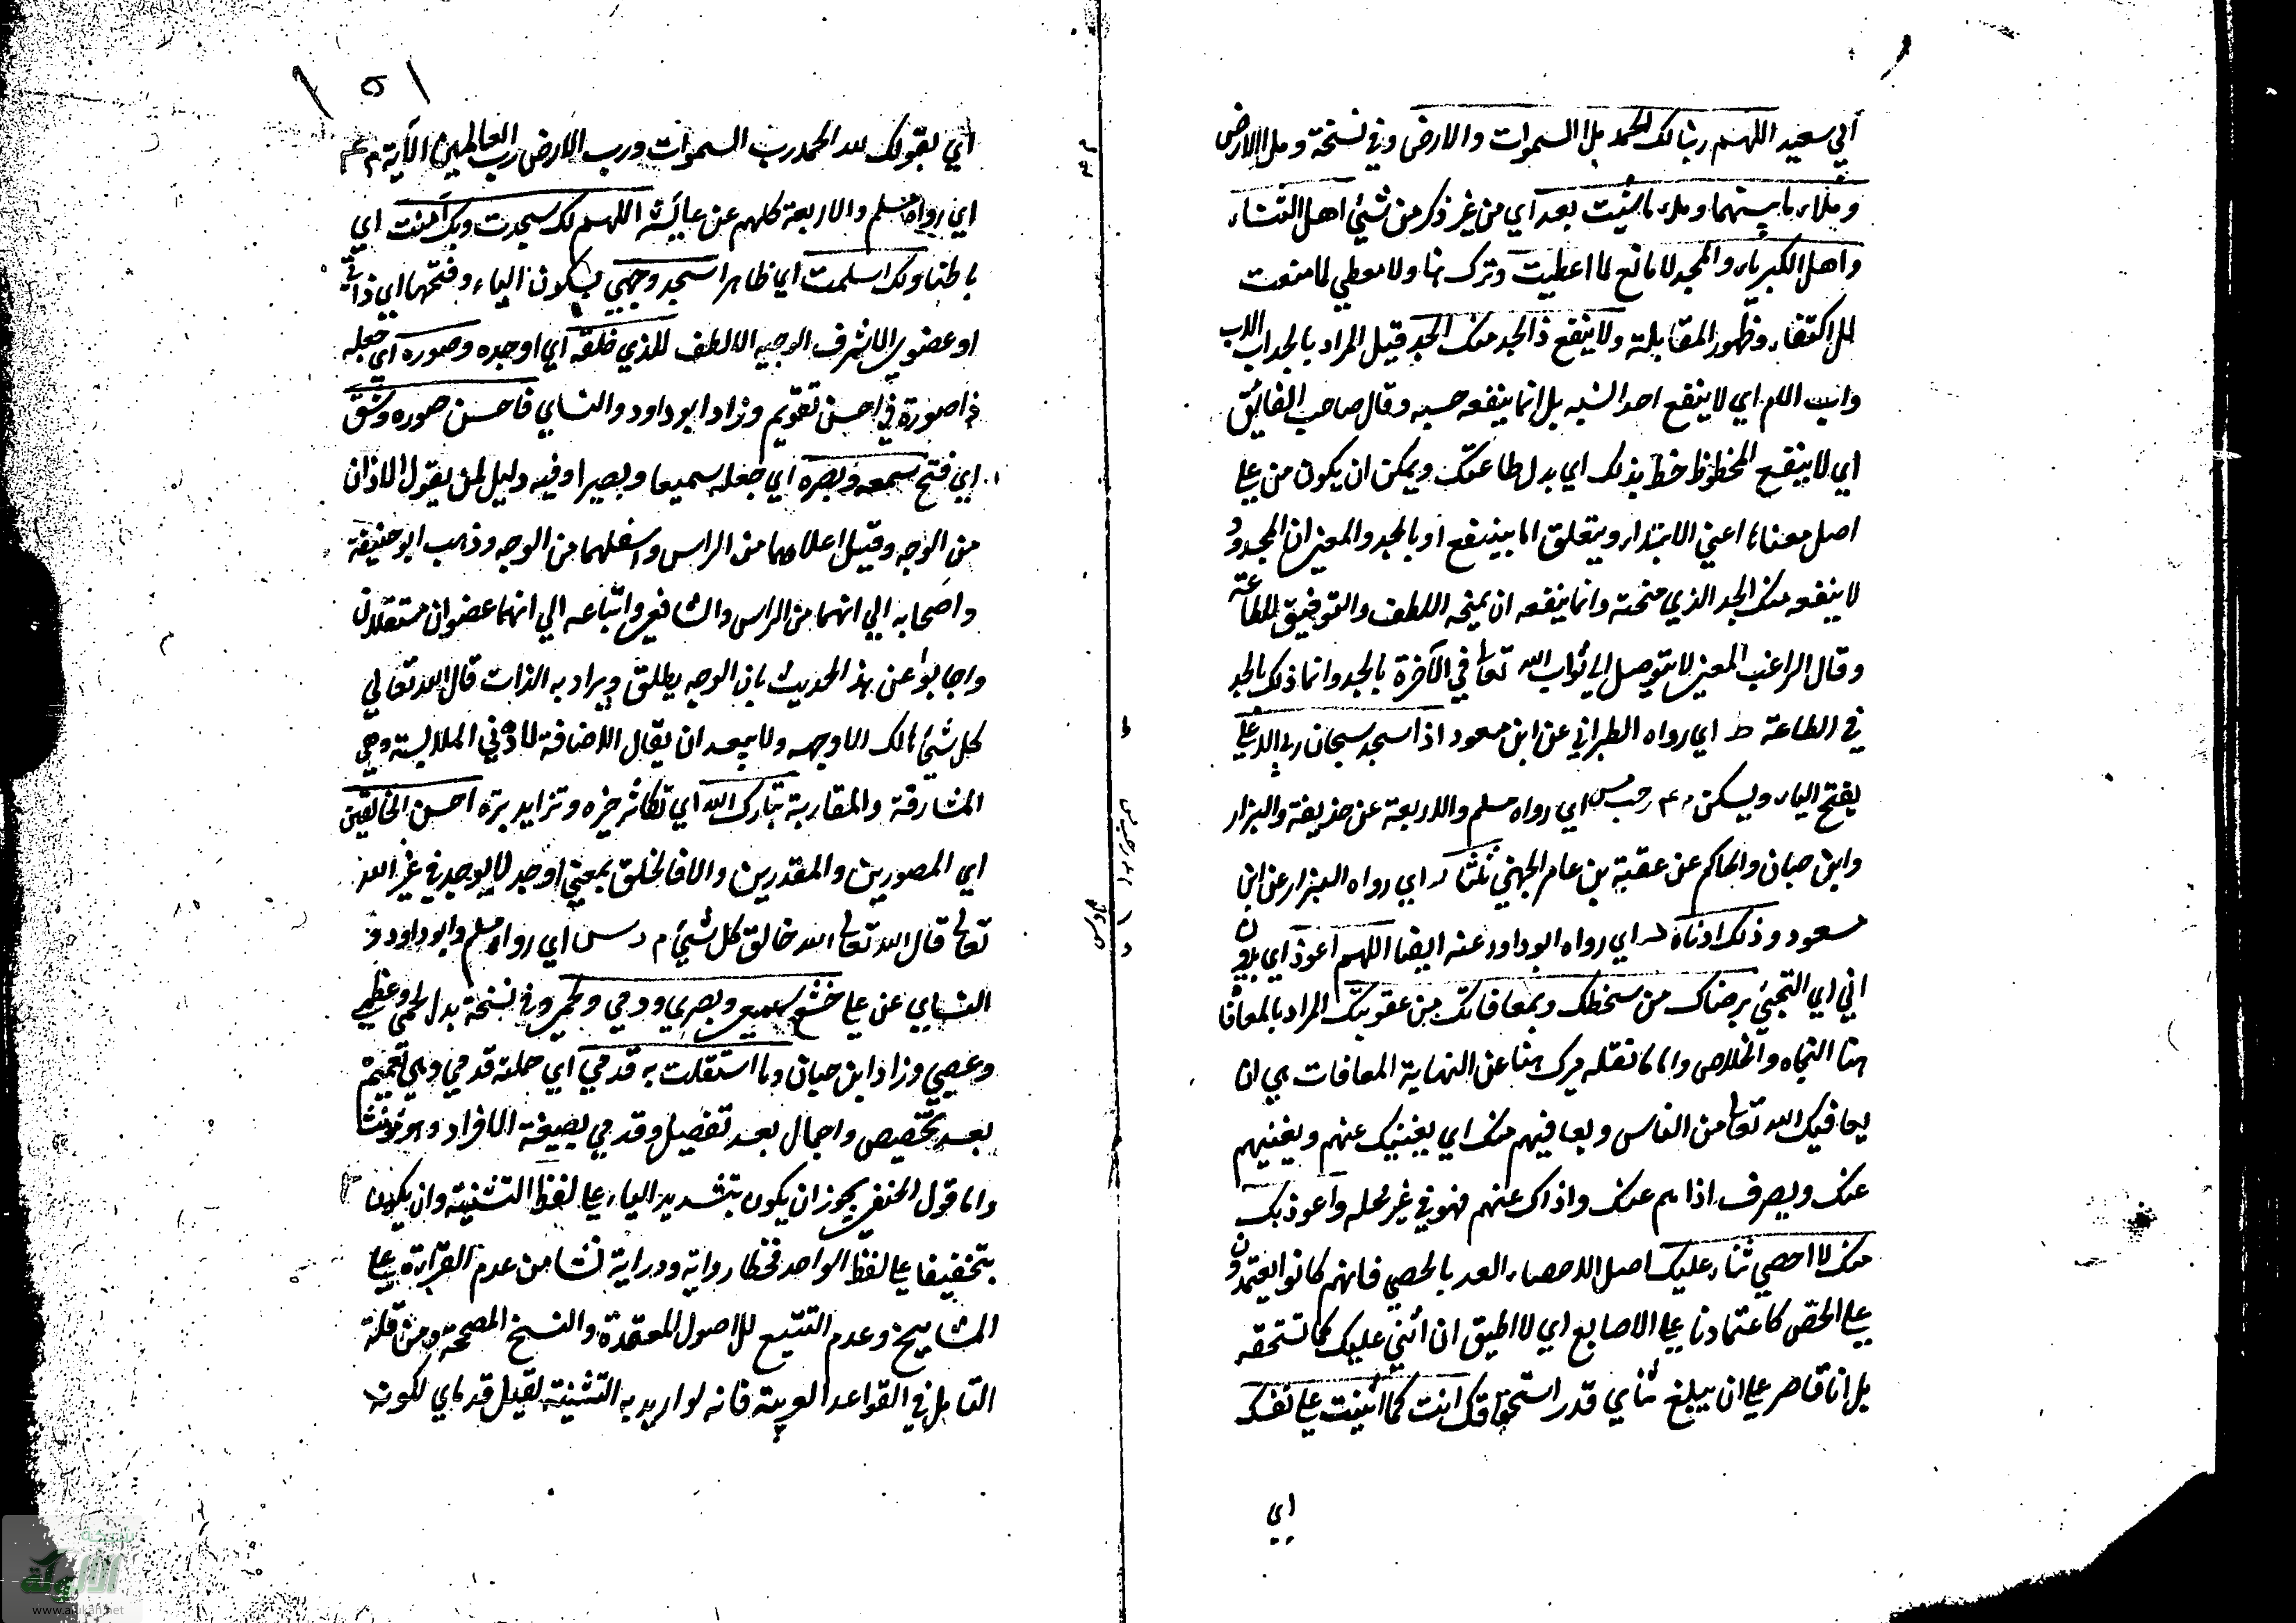 ابي سعيد اللهم ربنا لك الحمد ملأ السموات والارض وفي نسخة وملأ الارض
وملاء ما بينهما وملء ما شئت بعد اي من غير ذكر من شيئ اهل الثناء
واهل الكبرياء والمجد لا مانع لما اعطيت وترك نها ولا معطي لما منعت
للاكتفاء وظهور المقابلة ولا ينفع ذا الجد منك الجد قيل المراد بالجد اب الاب
واب الام اي لا ينفع احدا نسبه بل انما ينفعه حسبه وقال صاحب الفائق
اي لا ينفع المحظوظ حظه بذلك اي بدل طاعتك ويمكن ان يكون من علي
اصل معناها اعني الابتداء ويتعلق اما بينفع او بالجد والمعني ان المجدود
لا ينفعه منك الجد الذي منحته وانما ينفعه ان يمنحه اللطف والتوفيق للطاعة
وقال الراغب المعني لا يتوصل الي ثواب الله تعالي في الآخرة بالجد وانما ذلك بالجد
في الطاعة ط اي رواه الطبراني عن ابن مسعود اذا سجد سبحان ربي الاعلي
بفتح الياء ويسكن م عه ر حب مس اي رواه مسلم والاربعة عن حذيفة والبزار
وابن حبان والحاكم عن عقبة بن عامر الجهني ثلثا ر اي رواه البزار عن ابن
مسعود وذلك ادناه د اي رواه ابوداود عنه ايضا اللهم اعوذ اي بدون
اني اي التجئ برضاك من سخطك وبمعافاتك من عقوبتك المراد بالمعافاة
هنا النجاه والخلاص واما ما نقله ميرك هنا عن النهاية المعافات هي ان
يعافيك الله تعالي من الناس ويعافيهم منك اي يغنيك عنهم ويغنيهم
عنك ويصرف اذاهم عنك واذاك عنهم فهو في غير محله واعوذ بك
منك لا احصي ثناء عليك اصل الاحصاء العد بالحصي فانهم كانوا يعتمدون
علي الحصى كاعتمادنا علي الاصابع اي لا اطيق ان اثني عليك كما تستحقه
بل انا قاصر علي ان يبلغ ثنأي قدر استحقاقك انت كما اثنيت علي نفسك
اي
١٥١
اي بقولك لله الحمد رب السموات ورب الارض رب العالمين الآية م عه
اي رواه مسلم والاربعة كلهم عن عايشة اللهم لك سجدت وبك آمنت اي
باطنا ولك اسلمت اي ظاهرا سجد وجهي بسكون الياء وفتحها اي ذاتي
او عضوي الاشرف الوجيه الالطف للذي خلقه اي اوجده وصوره اي جعله
ذا صورة في احسن تقويم وزاد ابو داود والنساي فاحسن صوره وشق
اي فتح سمعه وبصره اي جعله سميعا وبصيرا وفيه دليل لمن يقول الاذان
من الوجه وقيل اعلاهما من الراس واسفلهما من الوجه وذهب ابو حنيفة
واصحابه الي انهما من الراس والشافعي واتباعه الي انهما عضوان مستقلان
واجابوا عن هذا الحديث بان الوجه يطلق ويراد به الذات قال الله تعالي
كل شيئ هالك الا وجهه ولا يبعد ان يقال الاضافة لادني الملابسة وهي
المشارفة والمقاربة تبارك الله اي تكاثر خيره وتزايد بره احسن الخالقين
اي المصورين والمقدرين والا فالخلق بمعني اوجد لا يوجد في غير الله
تعالي قال الله تعالي الله خالق كل شيئ م د س اي رواه مسلم وابو داود و
النساي عن علي خشع سمعي وبصري ودمي ولحمي وفي نسخة بدل لحمي وعظمي
وعصبي وزاد ابن حبان وما استقلت به قدمي اي حملته قدمي وهي تعميم
بعد تخصيص واجمال بعد تفصيل وقدمي بصيغة الافراد وهو مؤنث
واما قول الحنفي يجوز ان يكون بتشديد الياء علي لفظ التثنية وان يكون
بتخفيفها علي لفظ الواحد فخطا رواية ودراية نشا من عدم القراءة علي
المشايخ وعدم التتبع للاصول المعتمدة والنسخ المصححة ومن قلة
التامل في القواعد العربية فانه لو اريد به التثنية لقيل قدماي لكونه
شبكة
الألوكة
www.alukah.net